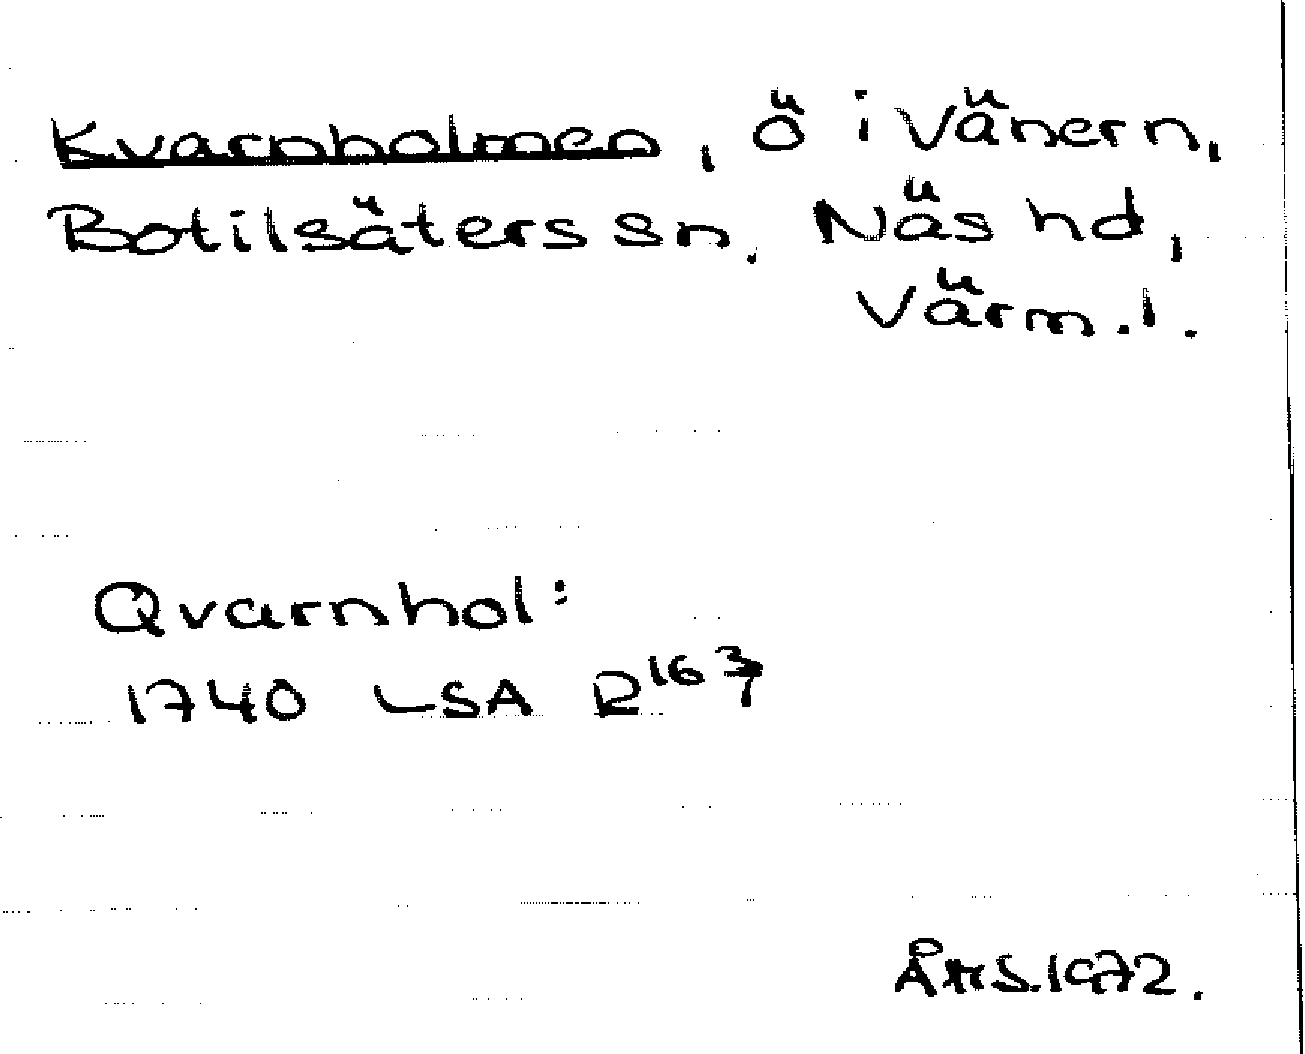 Kvarnholmen, ö i Vänern,
Botilsäters sn. Näs hd,
Värm. l.
Qvarnhol:
1740 LSA R 163/7
1972.